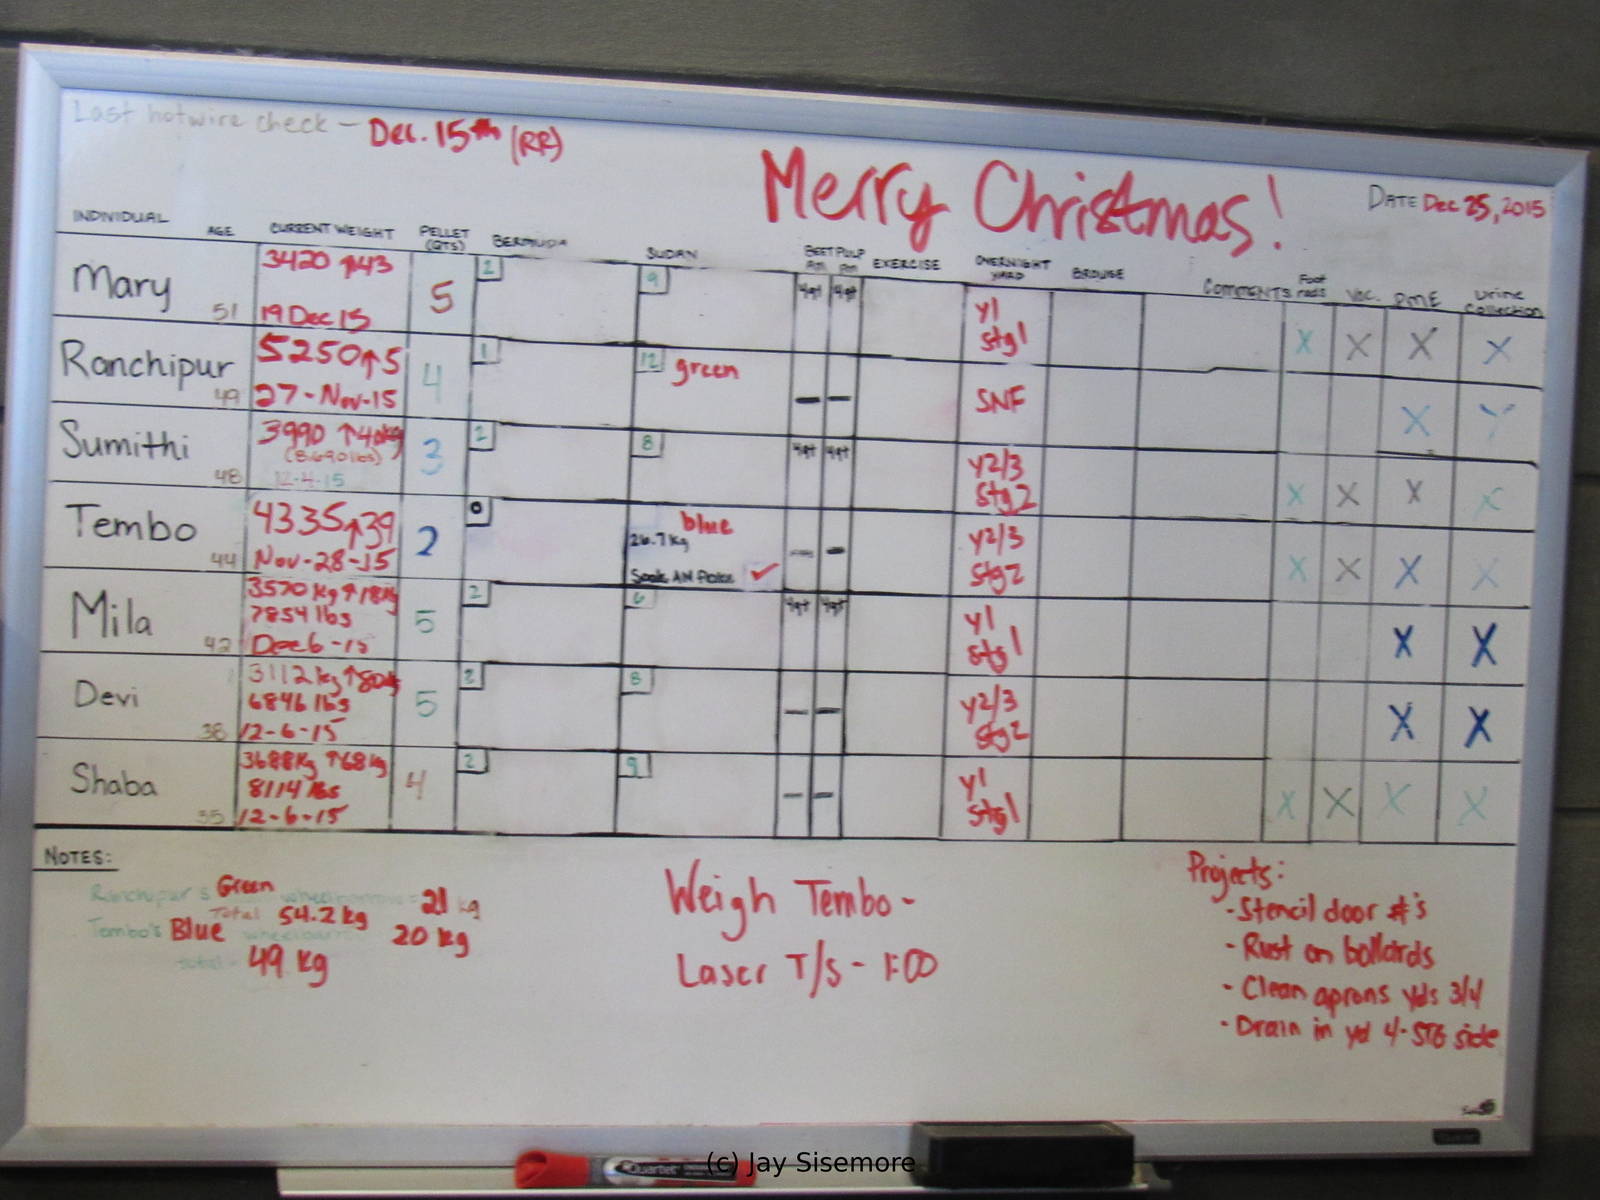 Last hotwire check - Dec. 15th (RR)
Merry Christmas!
DATE Dec 25, 2015
INDIVIDUAL AGE CURRENT WEIGHT PELLET (QTS) BERMUDA SUDAN BEET PULP AM PM EXERCISE OVERNIGHT YARD BROWSE COMMENTS Foot rads Voc. PME Urine Collection
Mary 51 3420 ↑43 19 Dec 15 5 2 9 4qt 4qt y1 Stg1 X X X X
Ranchipur 49 5250↑5 27-Nov-15 4 1 12 green - - SNF X X
Sumithi 48 3990 ↑40kg (8690lbs) 12-4-15 3 2 8 4qt 4qt y2/3 Stg2 X X X X
Tembo 44 4335↑39 Nov-28-15 2 0 blue 26.7kg Soak AM Flake ✓ - - y2/3 Stg2 X X X X
Mila 42 3570 kg ↑18kg 7854 lbs Dec 6-15 5 2 6 4qt 4qt y1 stg1 X X
Devi 38 3112kg ↑80kg 6846 lbs 12-6-15 5 2 8 - - y2/3 Stg2 X X
Shaba 35 3688kg ↑68kg 8114 lbs 12-6-15 4 2 9 - - y1 Stg1 X X X X
NOTES:
Ranchipur's Green wheelbarrow = 21 kg
Total 54.2 kg
Tembo's Blue wheelbarrow 20 kg
total - 49 kg
Weigh Tembo-
Laser T/S - 1:00
Projects:
- Stencil door #'s
- Rust on bollards
- Clean aprons yds 3/4
- Drain in yd 4-STG side
Quartet
(c) Jay Sisemore